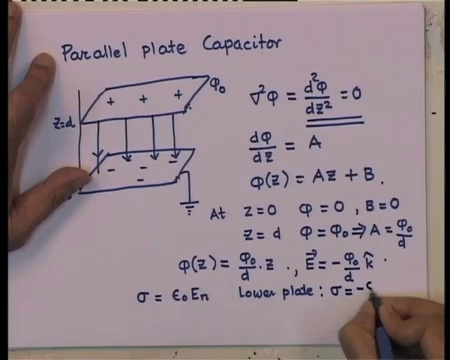 Parallel plate Capacitor
φ₀
+ + +
z=d
- - - -
- -
∇²φ = d²φ/dz² = 0
dφ/dz = A
φ(z) = Az + B.
At z=0 φ=0, B=0
z=d φ=φ₀ ⇒ A = φ₀/d
φ(z) = φ₀/d . z , E⃗ = - φ₀/d k̂ .
σ = ε₀En Lower plate: σ = -